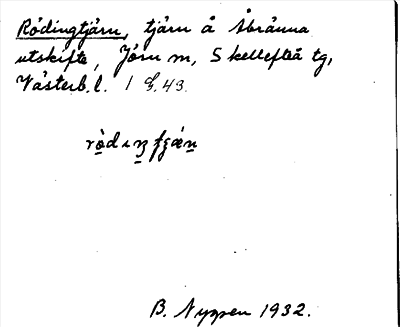 Rödingtjärn, tjärn å Åbränna
utskifte, Jörn sn, Skellefteå tg,
Västerb. l. 1 43.
B. Nyzzen 1932.